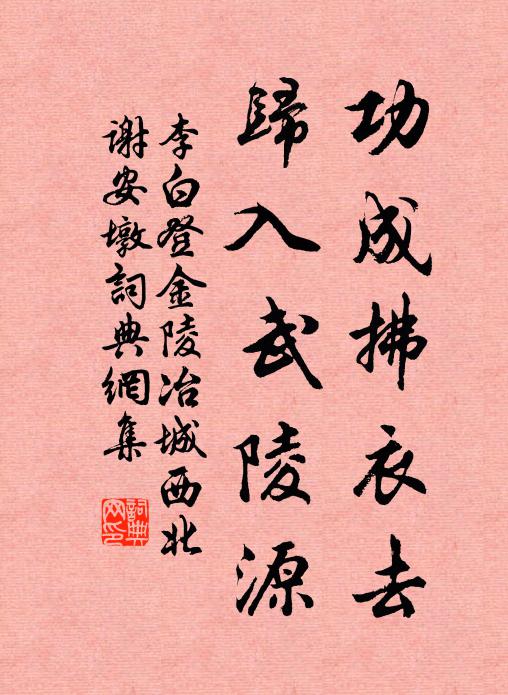 功成拂衣去
歸入武陵源
李白登金陵冶城西北
謝安墩詞典網集
詞典
网印